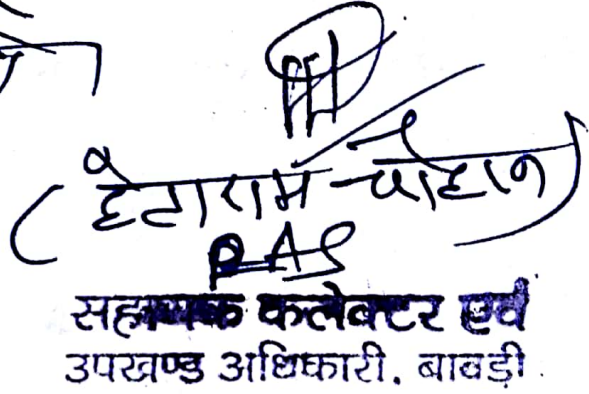 (हेताराम चौहान)
RAS
सहायक कलेक्टर एवं
उपखण्ड अधिकारी, बावड़ी